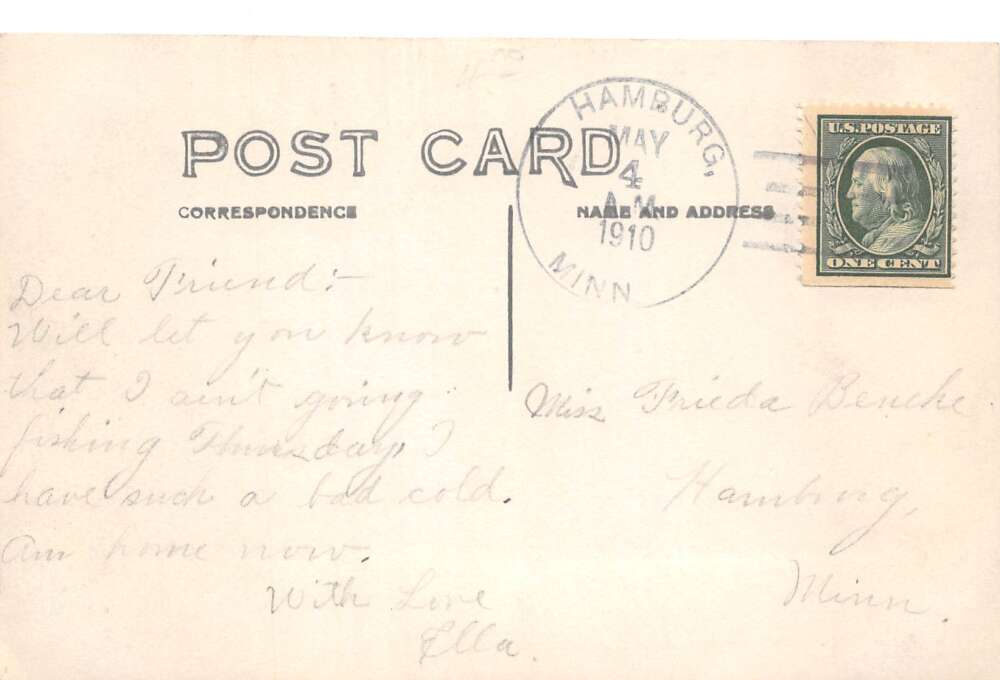 POST CARD
CORRESPONDENCE
NAME AND ADDRESS
HAMBURG,
MAY
4
A.M.
1910
MINN
U.S. POSTAGE
ONE CENT
Dear Friend:-
Will let you know
that I ain't going
fishing Thursday I
have such a bad cold.
Am home now.
With Love
Ella.
Miss Frieda Beneke
Hamburg,
Minn.